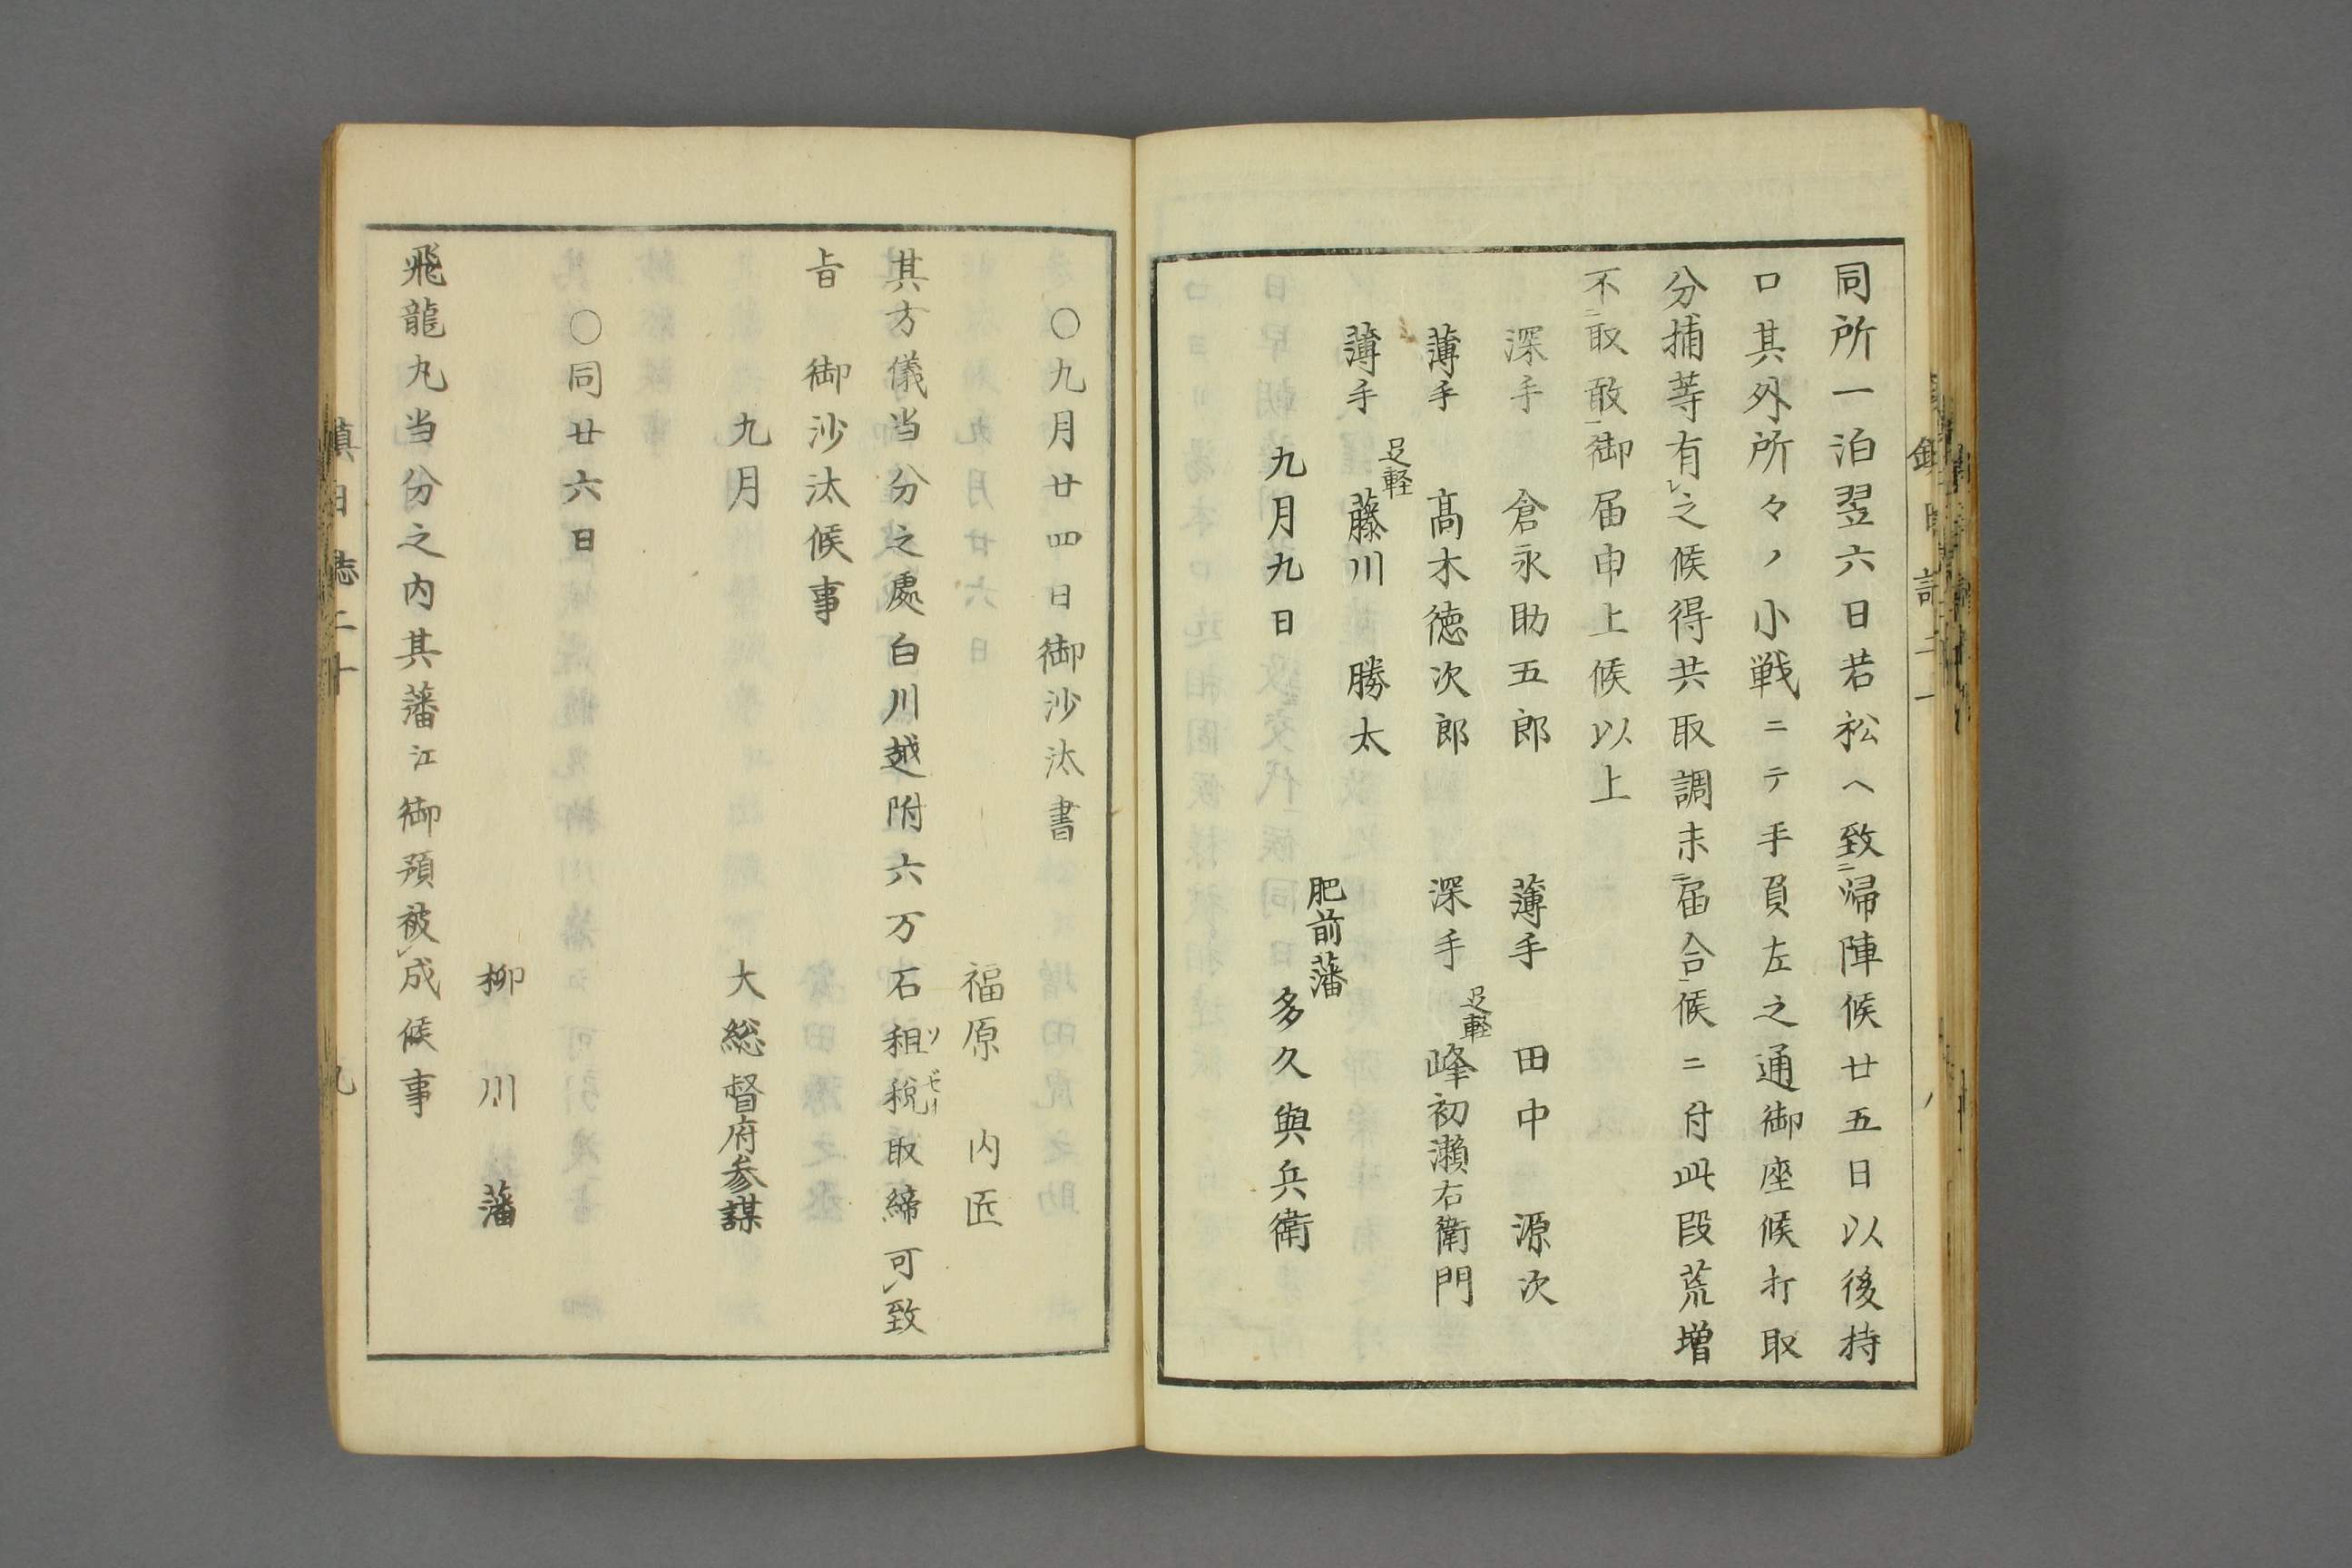 同所一泊翌六日若松ヘ致ニ帰陣候廿五日以後持
口其外所々ノ小戦ニテ手負左之通御座候打取
分捕等有レ之候得共取調未ニ届合一候ニ付此段荒増
不ニ取敢一御届申上候以上
深手　倉永助五郎　薄手　田中　源次
薄手　髙木徳次郎　深手　足軽　峰初瀬右衛門
薄手　足軽　藤川　勝太
九月九日　肥前藩　多久與兵衛
〇九月廿四日御沙汰書
福原　内匠
其方儀当分之處白川越附六万石租税ソゼイ取締可レ致
旨　御沙汰候事
九月　大総督府参謀
〇同廿六日
柳川藩
飛龍丸当分之内其藩江御預被レ成候事
鎮日誌二十
九